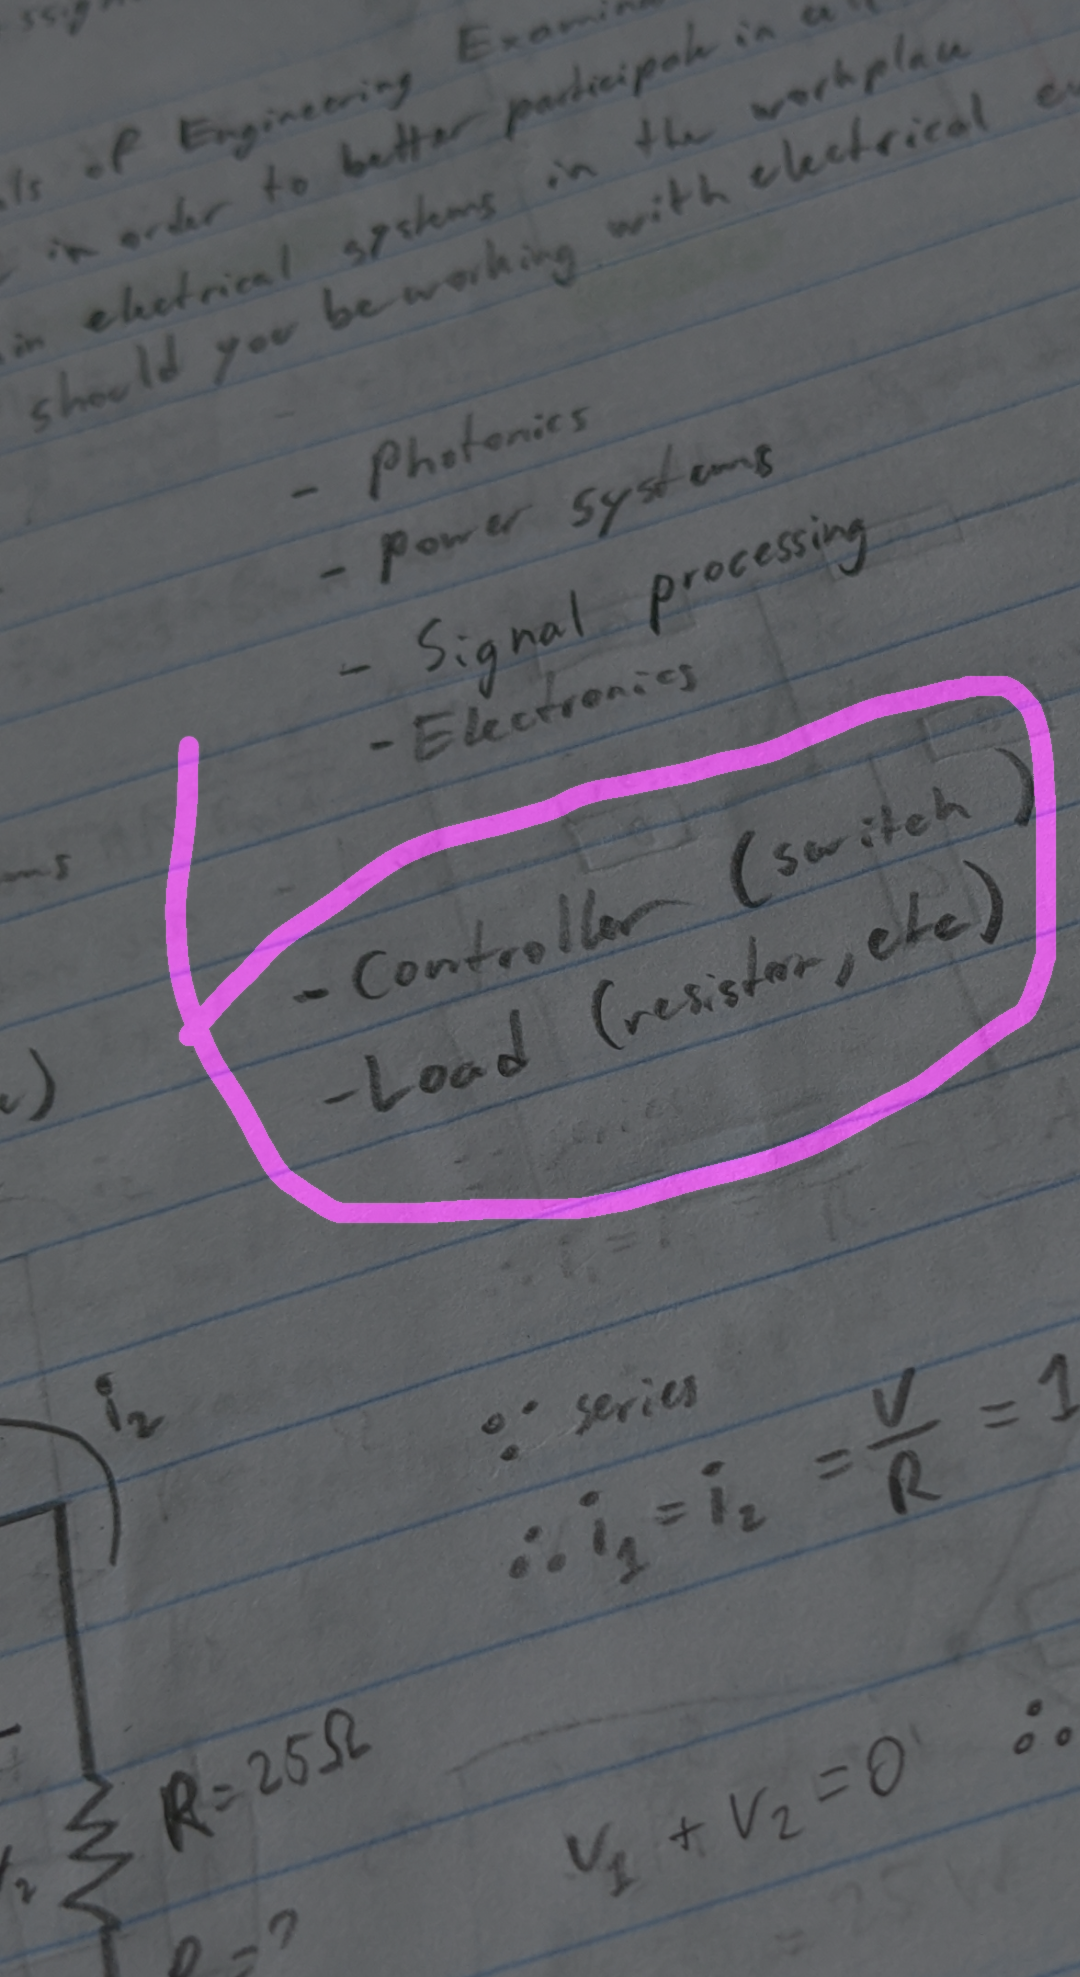 of Engineering
in order to better participate in
in electrical systems in the workplace
should you be working with electrical
- Photonics
- Power systems
- Signal processing
- Electronics
- Controller (switch)
- Load (resistor, etc)
i₂
∵ series
∴ i₁ = i₂ = V/R = 1
R = 25Ω
V₁ + V₂ = 0 ∴
= ?